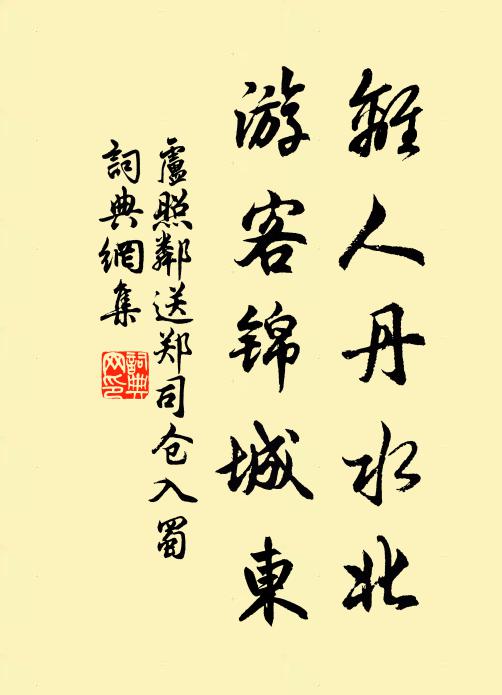 離人丹水北
游客锦城東
盧照鄰送郑司仓入蜀
詞典網集
詞典
网印